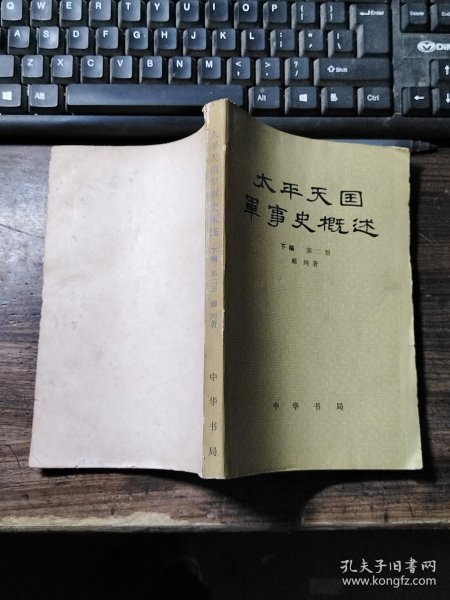 Enter
Shift
Alt
Ctrl
Alt
Ctrl
DIM
太平天囯
軍事史概述
下编 第二册
郦纯著
中华书局
太平天囯軍事史概述 下编 第二册 郦纯著 中华书局
孔夫子旧书网
www.kongfz.com